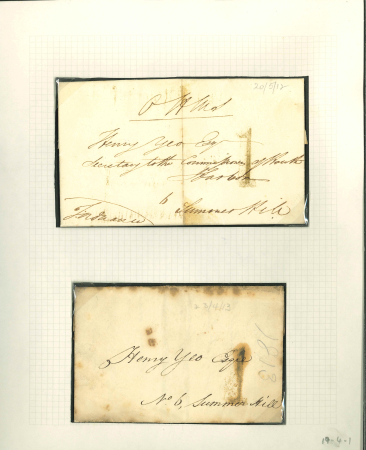 20/5/12
O H M S
Henry Yeo Esqr
Secretary to the Commissioners of
Harbour
6 Summer Hill
1
27/4/13
Henry Yeo Esqre
No 6, Summer Hill
19-4-1